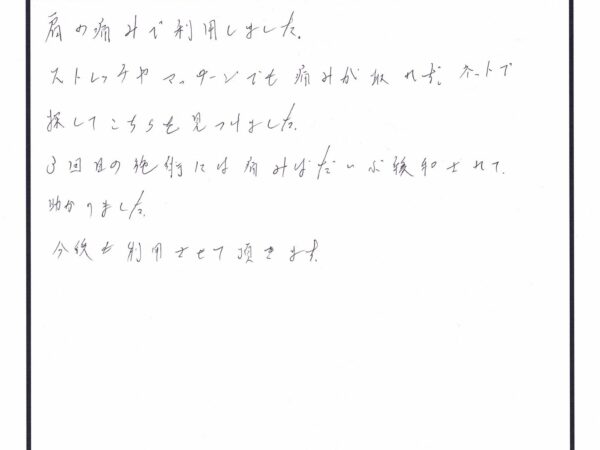 肩の痛みで利用しました。
ストレッチやマッサージでも痛みが取れず、ネットで
探してこちらを見つけました。
3回目の施術には痛みはだいぶ緩和されて、
助かりました。
今後も利用させて頂きます。